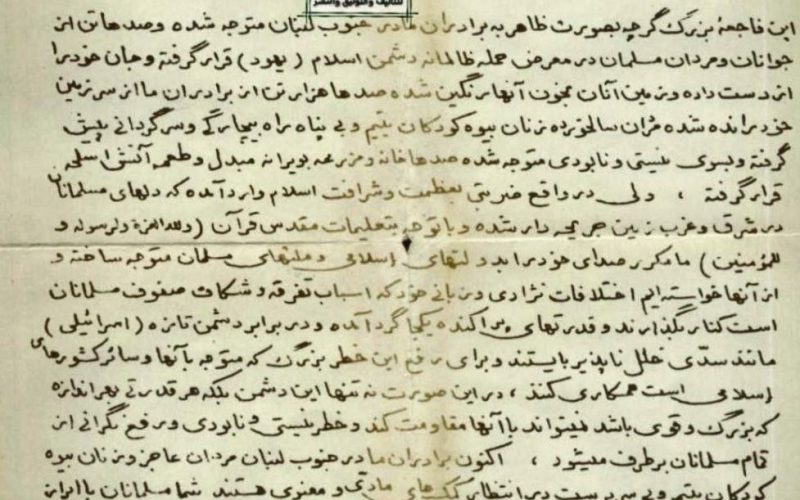 للتأليف والتوثيق والنشر
این فاجعهٔ بزرگ گرچه بصورت ظاهر به برادران ما در جنوب لبنان متوجه شده وصدها تن از
جوانان و مردان مسلمان در معرض حمله ظالمانه دشمن اسلام (یهود) قرار گرفته و جان خود را
از دست داده و زمین آنان بخون آنها رنگین شده صدها هزار تن از برادران ما از سرزمین
خود رانده شده مران سالخورده زنان بیوه کودکان یتیم و بی پناه راه بیچارگی و سرگردانی پیش
گرفته و بسوی نیستی و نابودی متوجه شده صدها خانه و مزرعه بویرانه مبدل و طعمه آتش اسلحه
قرار گرفته ، ولی در واقع ضربتی بعظمت و شرافت اسلام وارد آمده که دلهای مسلمانان
در شرق و غرب زمین جریحه دار شده و با توجه بتعلیمات مقدس قرآن (ولله العزة ولرسوله و
للمؤمنین) ما مکرر صدای خود را بدولتهای اسلامی و ملتهای مسلمان متوجه ساخته و
از آنها خواسته ایم اختلافات نژادی و زبانی خود که اسباب تفرقه و شکاف صفوف مسلمانان
است کنار بگذارند و قدرتهای پراکنده یکجا گرد آمده و در برابر دشمن تازه (اسرائیلی)
مانند سدّی خلل ناپذیر بایستند و برای رفع این خطر بزرگ که متوجه بآنها و سائر کشورهای
اسلامی است همکاری کنند ، در این صورت نه تنها این دشمن بلکه هر قدرتی بهر اندازه
که بزرگ و قوی باشد نمیتواند با آنها مقاومت کند و خطر نیستی و نابودی و رفع نگرانی از
تمام مسلمانان برطرف میشود ، اکنون برادران ما در جنوب لبنان مردان عاجز و زنان بیوه
کودکان یتیم و بی سرپرست در انتظار کمک های مادّی و معنوی هستند شما مسلمانان با ایران